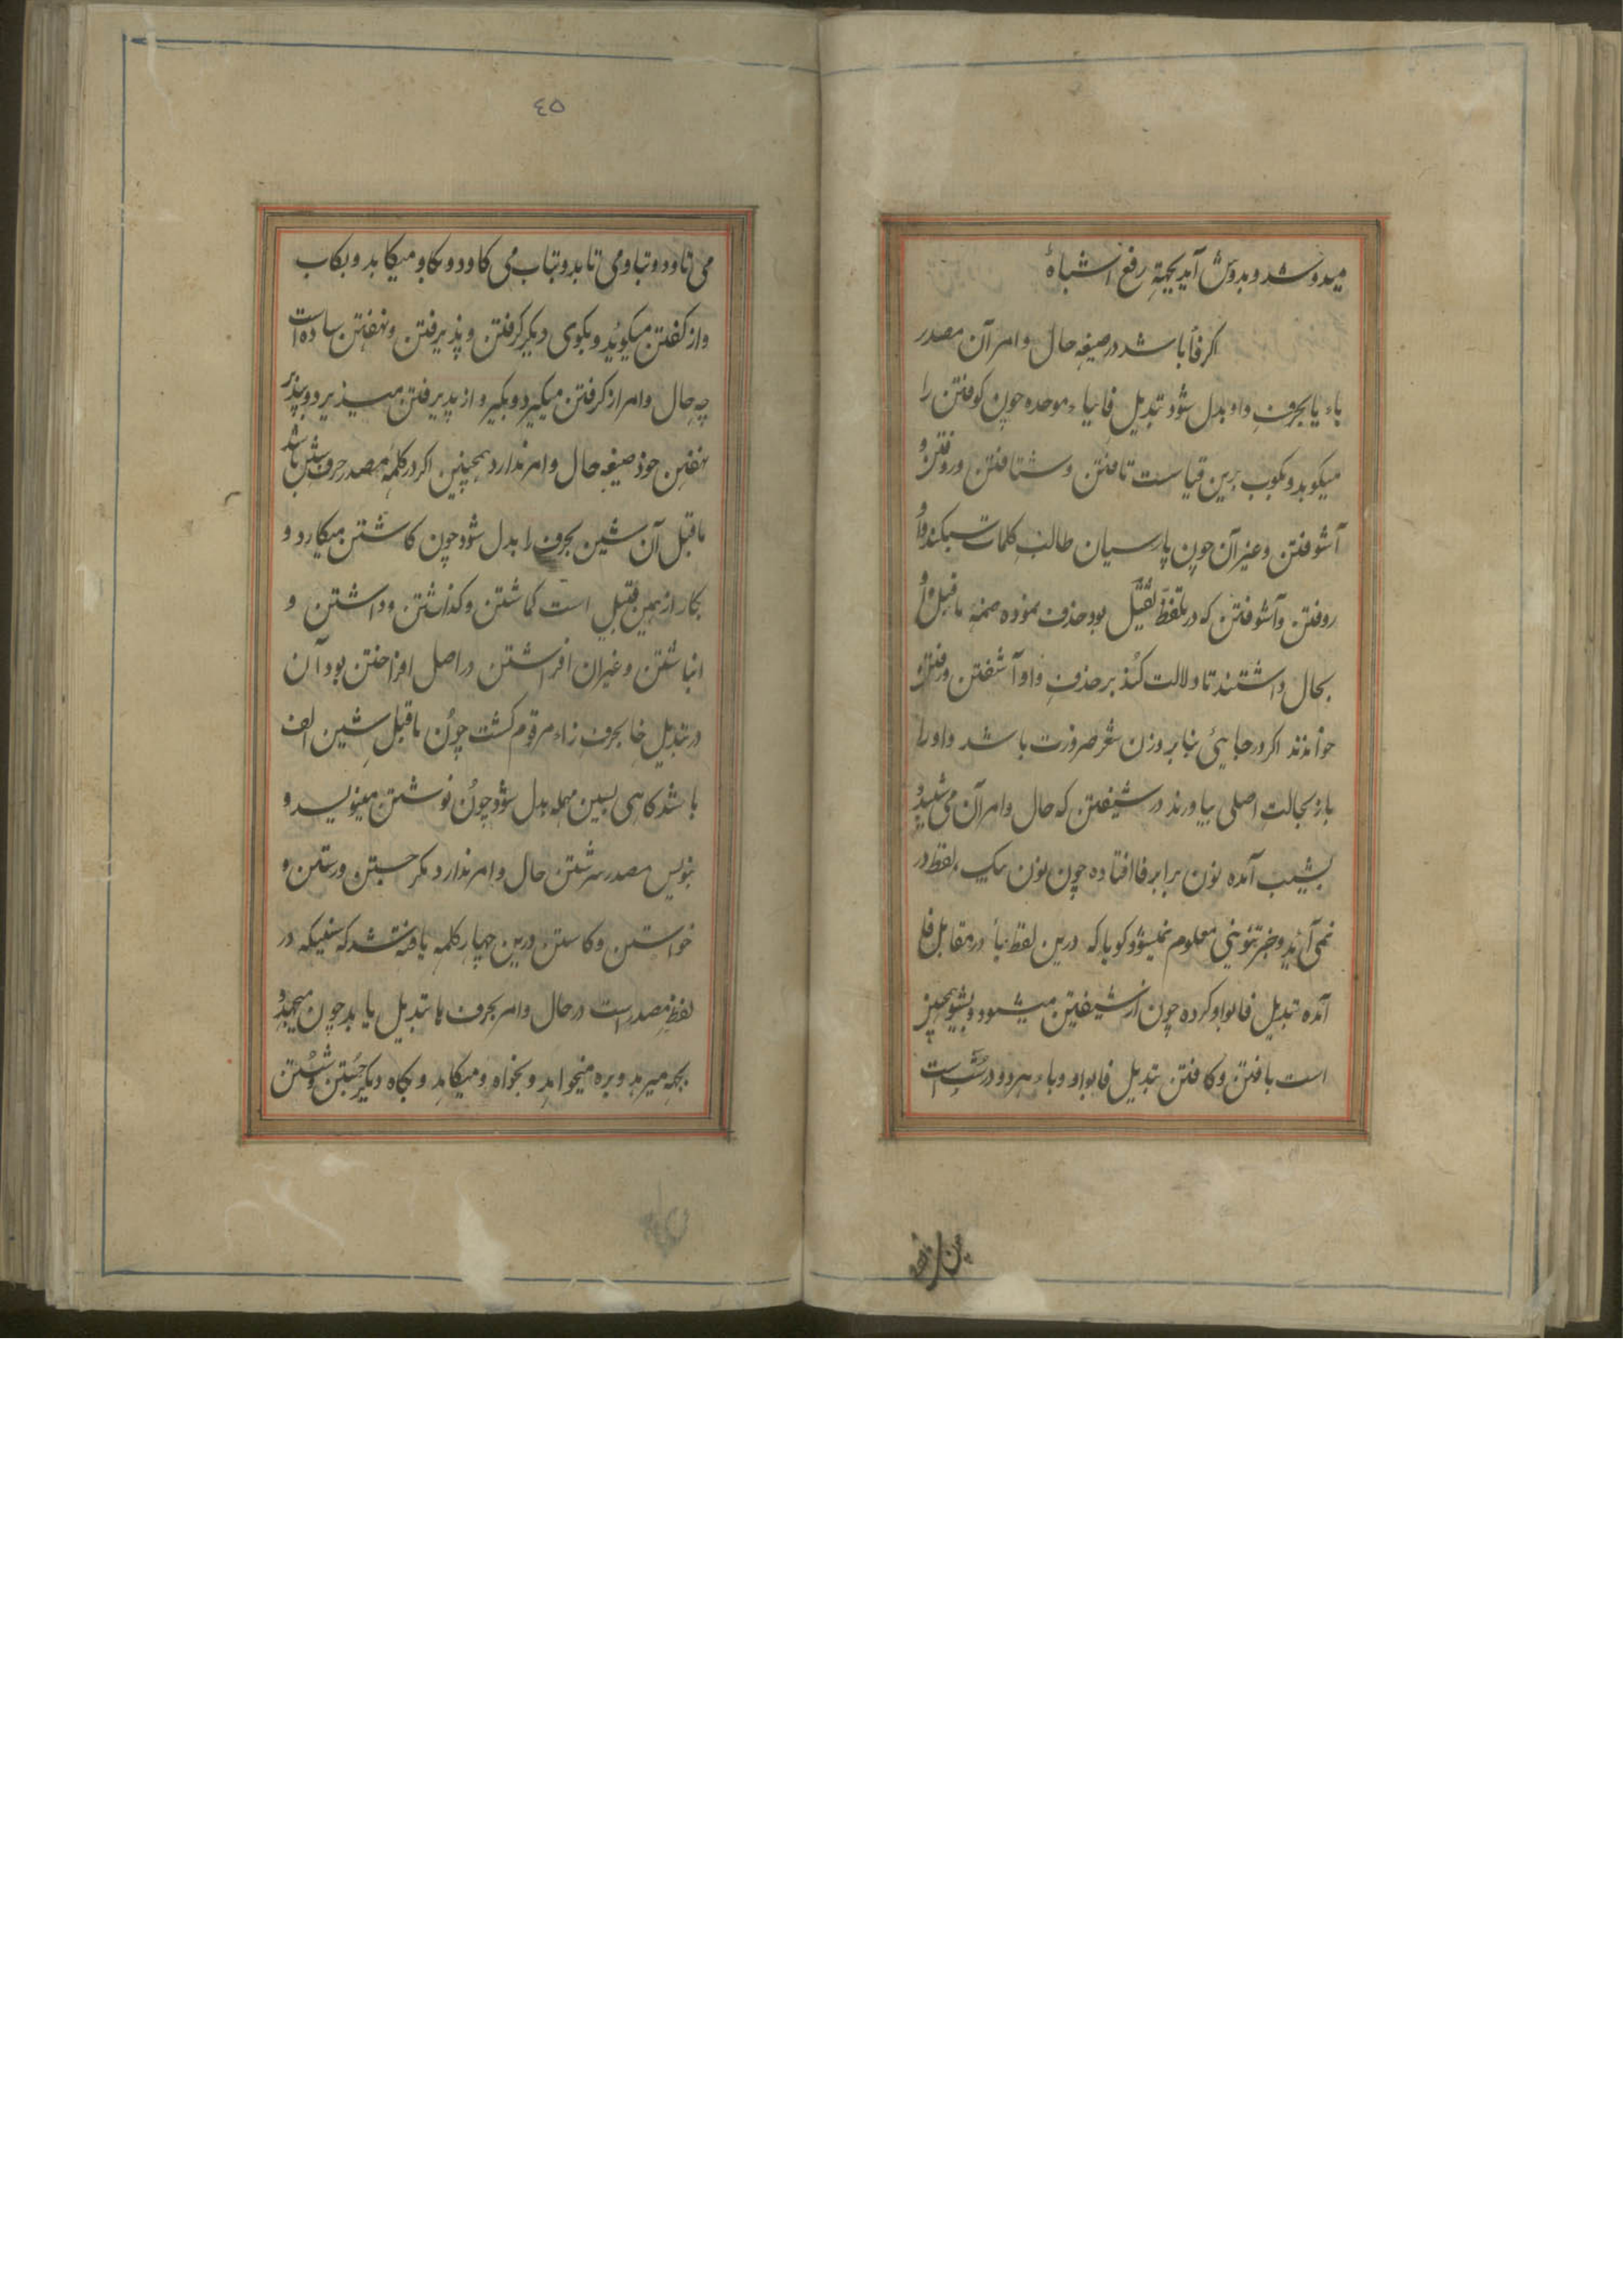 میدوشد و بدوش آید بجهة رفع اشتباهٔ
اکر فأ باشد در صیغهٔ حال و امر آن مصدر
باء یا بحرفِ واو بدل شود تبدیل فا بباء موحده چون کوفتن را
میکوبد و بکوب برین قیاست تافتن و شتافتن و روفتن و
آشوفتن و غیر آن چون پارسیان طالبِ کلمات سبکند واو
روفتن و آشوفتن که در تلفظ ثقیل بود حذف نموده ضمهٔ ماقبل واو
بحال داشتند تا دلالت کند بر حذفِ واو آشفتن و رفتن
خوانند اکر در جایئ بنابر وزن شعر ضرورت باشد واو را
باز بحالتِ اصلی بیاورند در شیفتن که حال و امر آن می شیبد و
بشیب آمده نون برابر فا افتاده چون نون یک لفظ در
نمی آید و خبر تنوینی معلوم نمیشود کویا که درین لفظ یأ در مقابل فا
آمده تبدیل فا بواو کرده چون از شیفتن میشود و بشیو همچنین
است یافتن و کافتن تبدیل فا بواو و باء هر دو درست است
٤٥
می تاود و بتاو می تابد و بتاب می کاود و بکاو میکابد و بکاب
و از کفتن میکوید و بکوی دیکر کرفتن و پذیرفتن و نهفتن ساده است
چه حال و امر از کرفتن میکیرد و بکیر و از پذیرفتن میپذیرد و بپذیر
نهفتن خود صیغهٔ حال و امر ندارد همچنین اکر در کلمهٔ مصدر حرف شین باشد
ماقبل آن شین بحرف را بدل شود چون کاشتن میکارد و
بکار از همین قبیل است کماشتن و کذاشتن و داشتن و
انباشتن و غیر ان افراشتن در اصل افراختن بود آن
در تبدیل خا بحرف زاء مرقوم کشت چون ماقبل شین الف
باشد کاهی بسین مهمله بدل شود چون نوشتن مینویسد و
بنویس مصدر سرشتن حال و امر ندارد مکر جستن و رستن و
خواستن و کاستن درین چهار کلمه یافته شد که سینیکه در
لفظ مصدر است در حال و امر بحرف ها تبدیل یابد چون میجهد و
بجه میرهد و بره میخواهد و بخواه و میکاهد و بکاه دیکر جُستن و شُستن